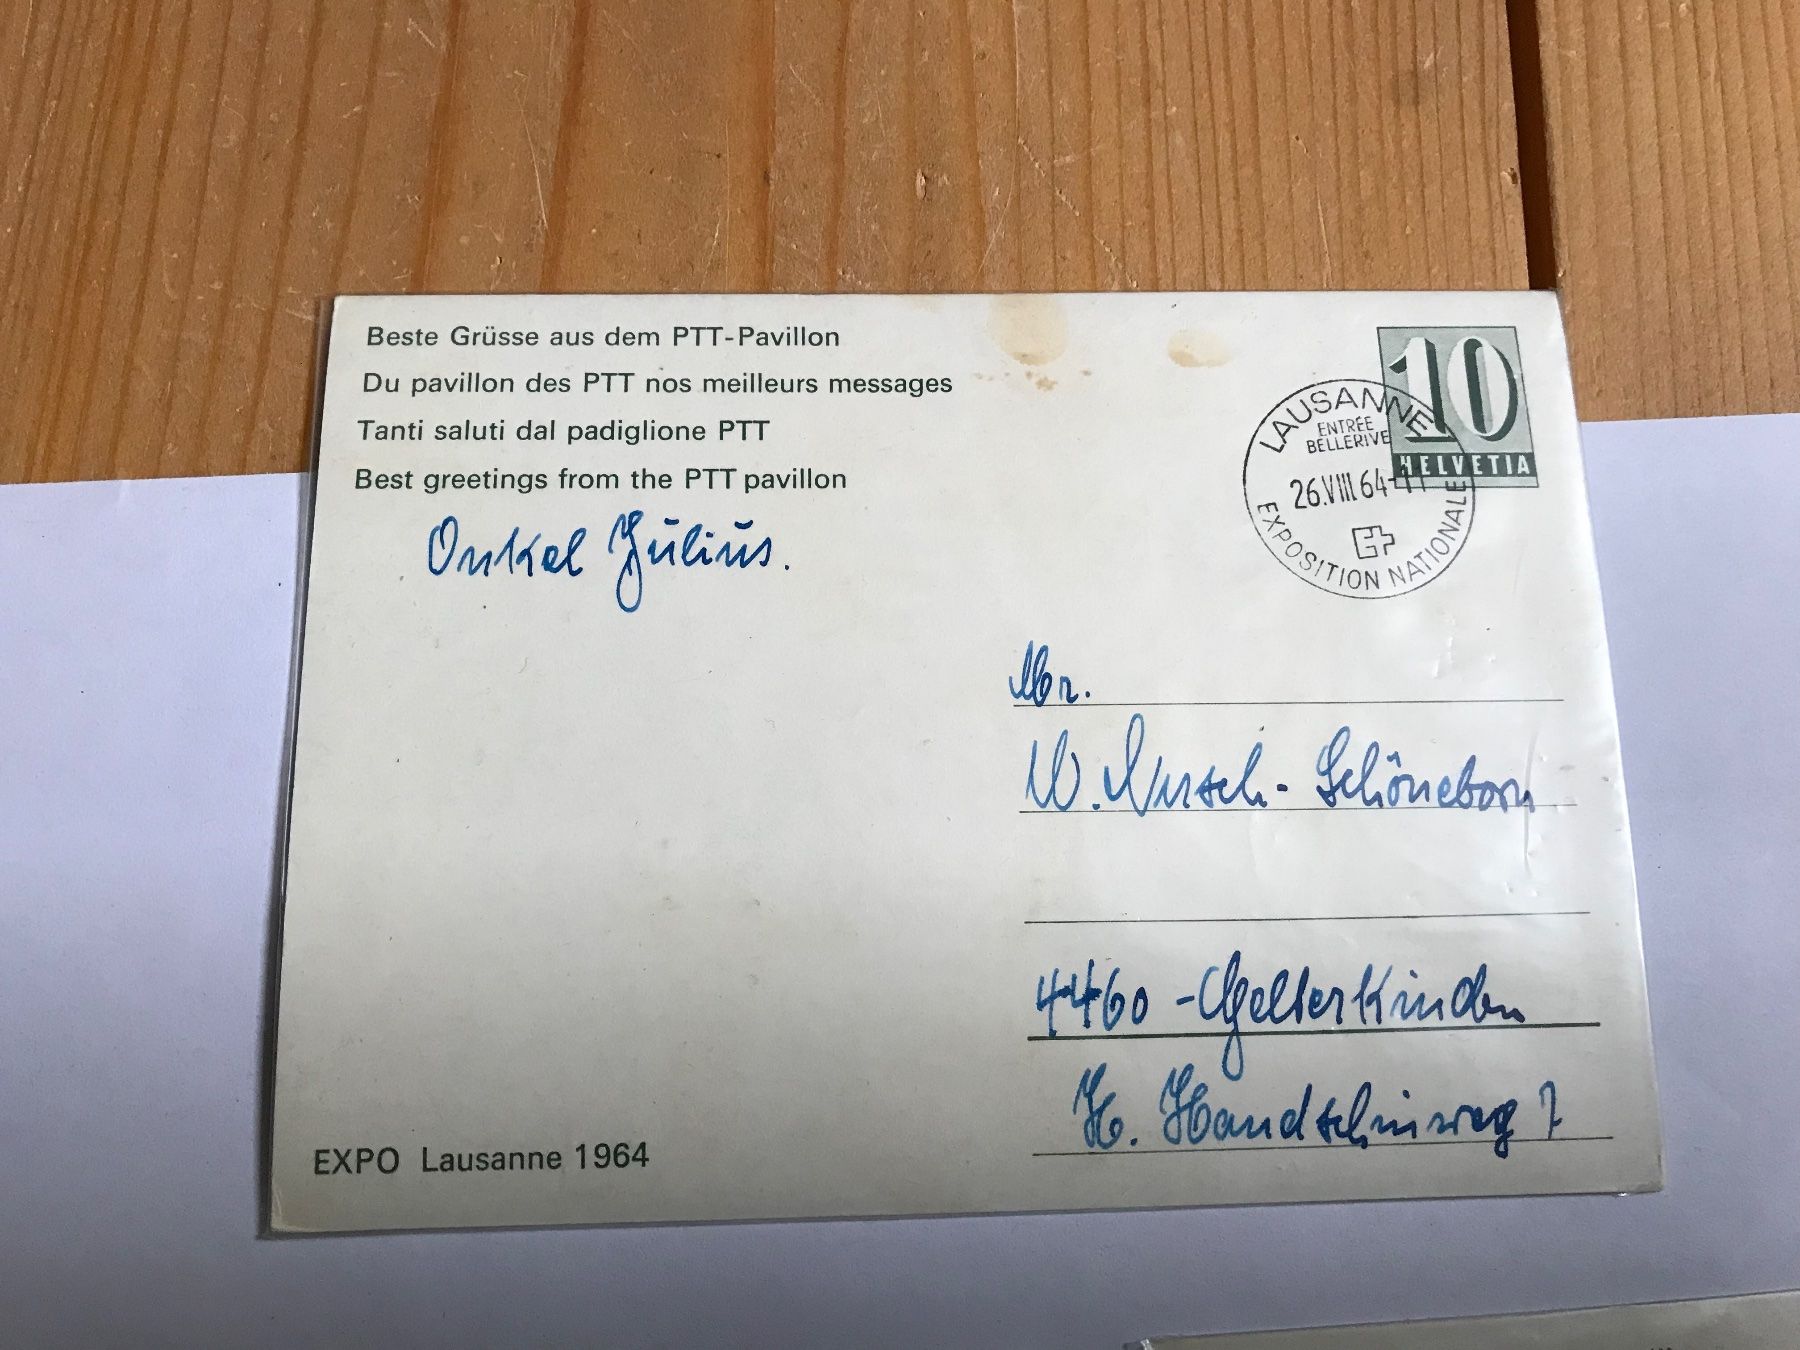 Beste Grüsse aus dem PTT-Pavillon
Du pavillon des PTT nos meilleurs messages
Tanti saluti dal padiglione PTT
Best greetings from the PTT pavillon
Onkel Julius.
10
HELVETIA
LAUSANNE
ENTRÉE
BELLERIVE
26.VIII.64-11
EXPOSITION NATIONALE
Mr.
W. Schöneborn
4460 - Gelterkinden
H. Handschinweg 7
EXPO Lausanne 1964